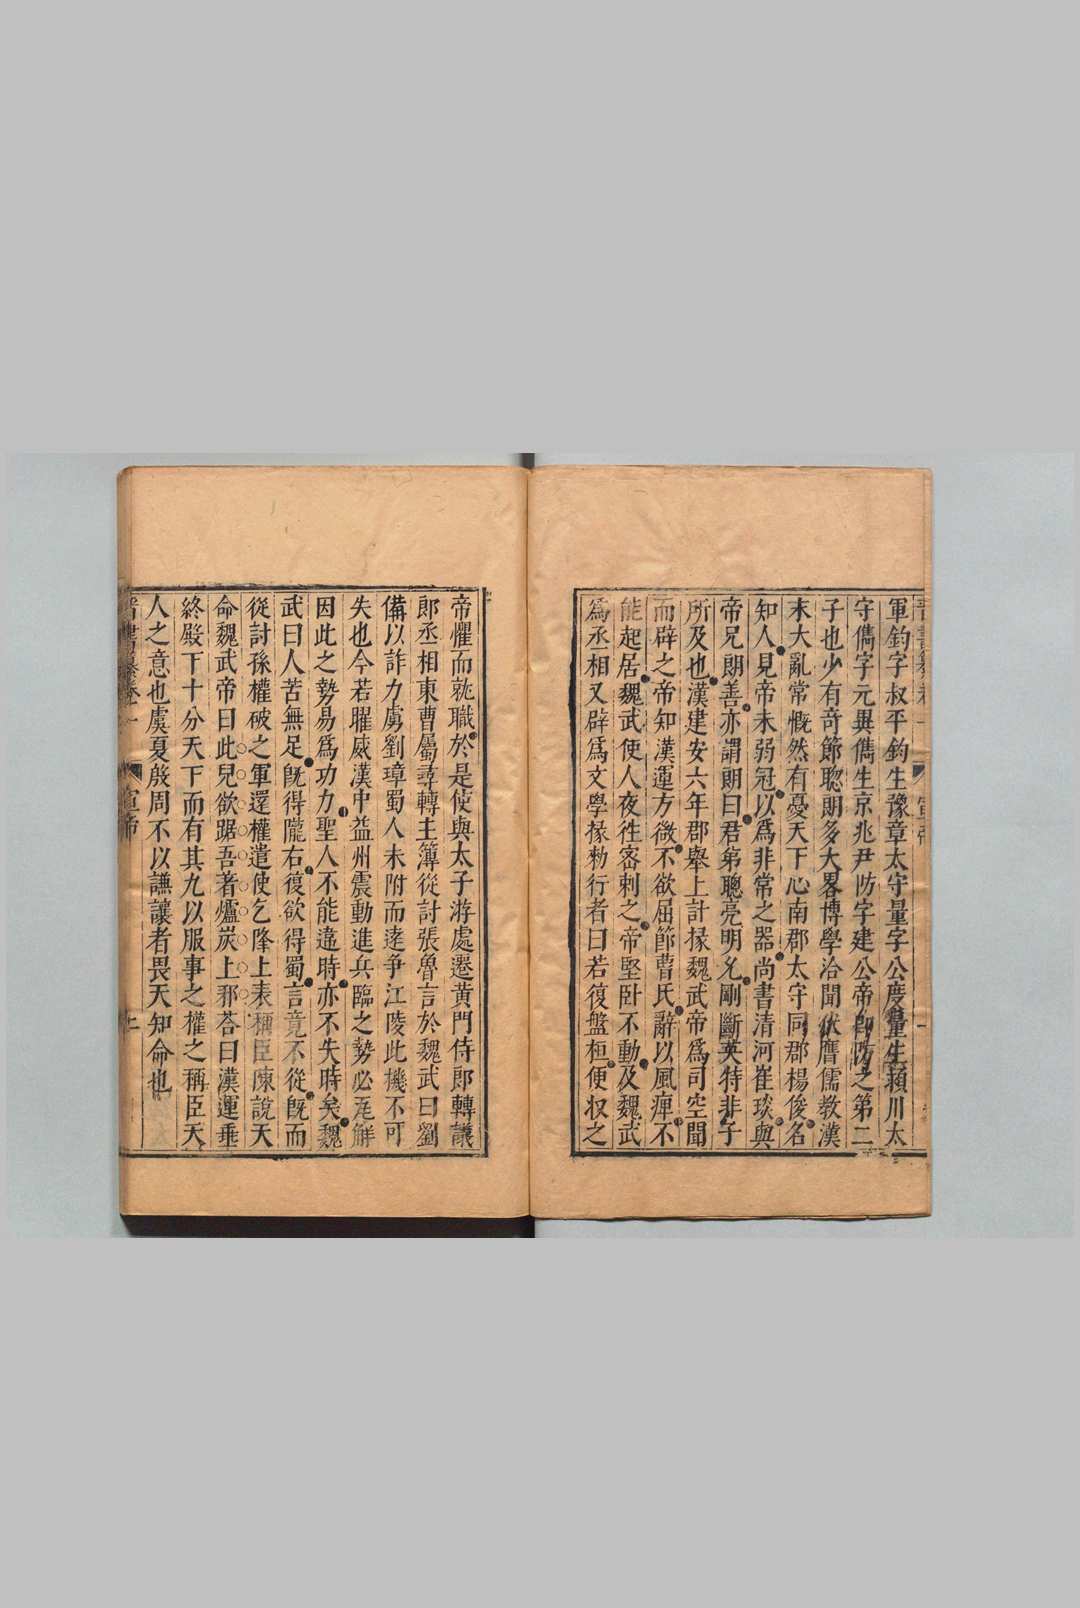 軍鈞字叔平鈞生豫章太守量字公度量生穎川太
守儁字元異儁生京兆尹防字建公帝卽防之第二
子也少有奇節聰朗多大畧博學洽聞伏膺儒教漢
末大亂常慨然有憂天下心南郡太守同郡楊俊名
知人見帝未弱冠以爲非常之器尚書清河崔琰與
帝兄朗善亦謂朗曰君弟聰亮明允剛斷英特非子
所及也漢建安六年郡舉上計掾魏武帝爲司空聞
而辟之帝知漢運方微不欲屈節曹氏辭以風痺不
能起居魏武使人夜往密刺之帝堅卧不動及魏武
爲丞相又辟爲文學掾勑行者曰若復盤桓便収之
帝懼而就職於是使與太子游處遷黃門侍郎轉議
郎丞相東曹屬尋轉主簿從討張魯言於魏武曰劉
備以詐力虜劉璋蜀人未附而逺争江陵此機不可
失也今若曜威漢中益州震動進兵臨之勢必瓦解
因此之勢易爲功力聖人不能違時亦不失時矣魏
武曰人苦無足旣得隴右復欲得蜀言竟不從旣而
從討孫權破之軍還權遣使乞降上表稱臣陳說天
命魏武帝曰此兒欲踞吾著爐炭上邪荅曰漢運垂
終殿下十分天下而有其九以服事之權之稱臣天
人之意也虞夏殷周不以謙讓者畏天知命也
晉書纂卷一 宣帝 二